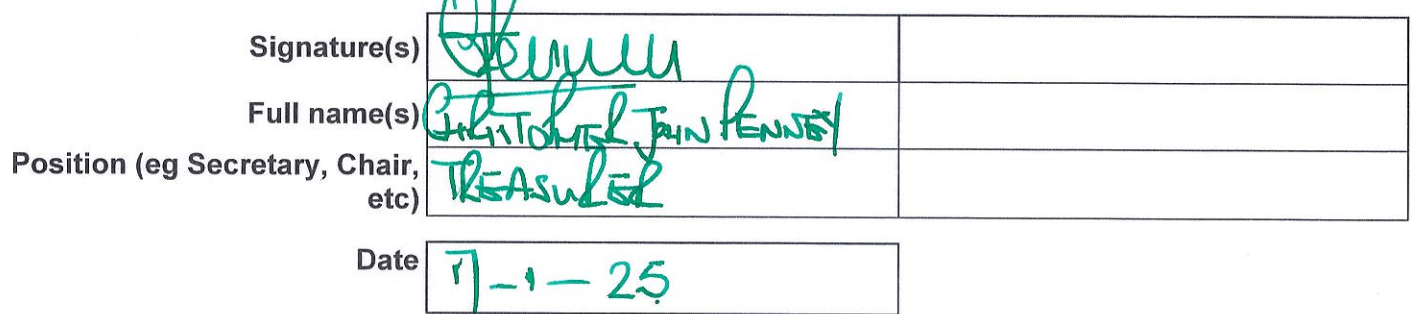 Signature(s)
Full name(s) CHRISTOPHER JOHN PENNEY
Position (eg Secretary, Chair,
etc) TREASURER
Date -1-25